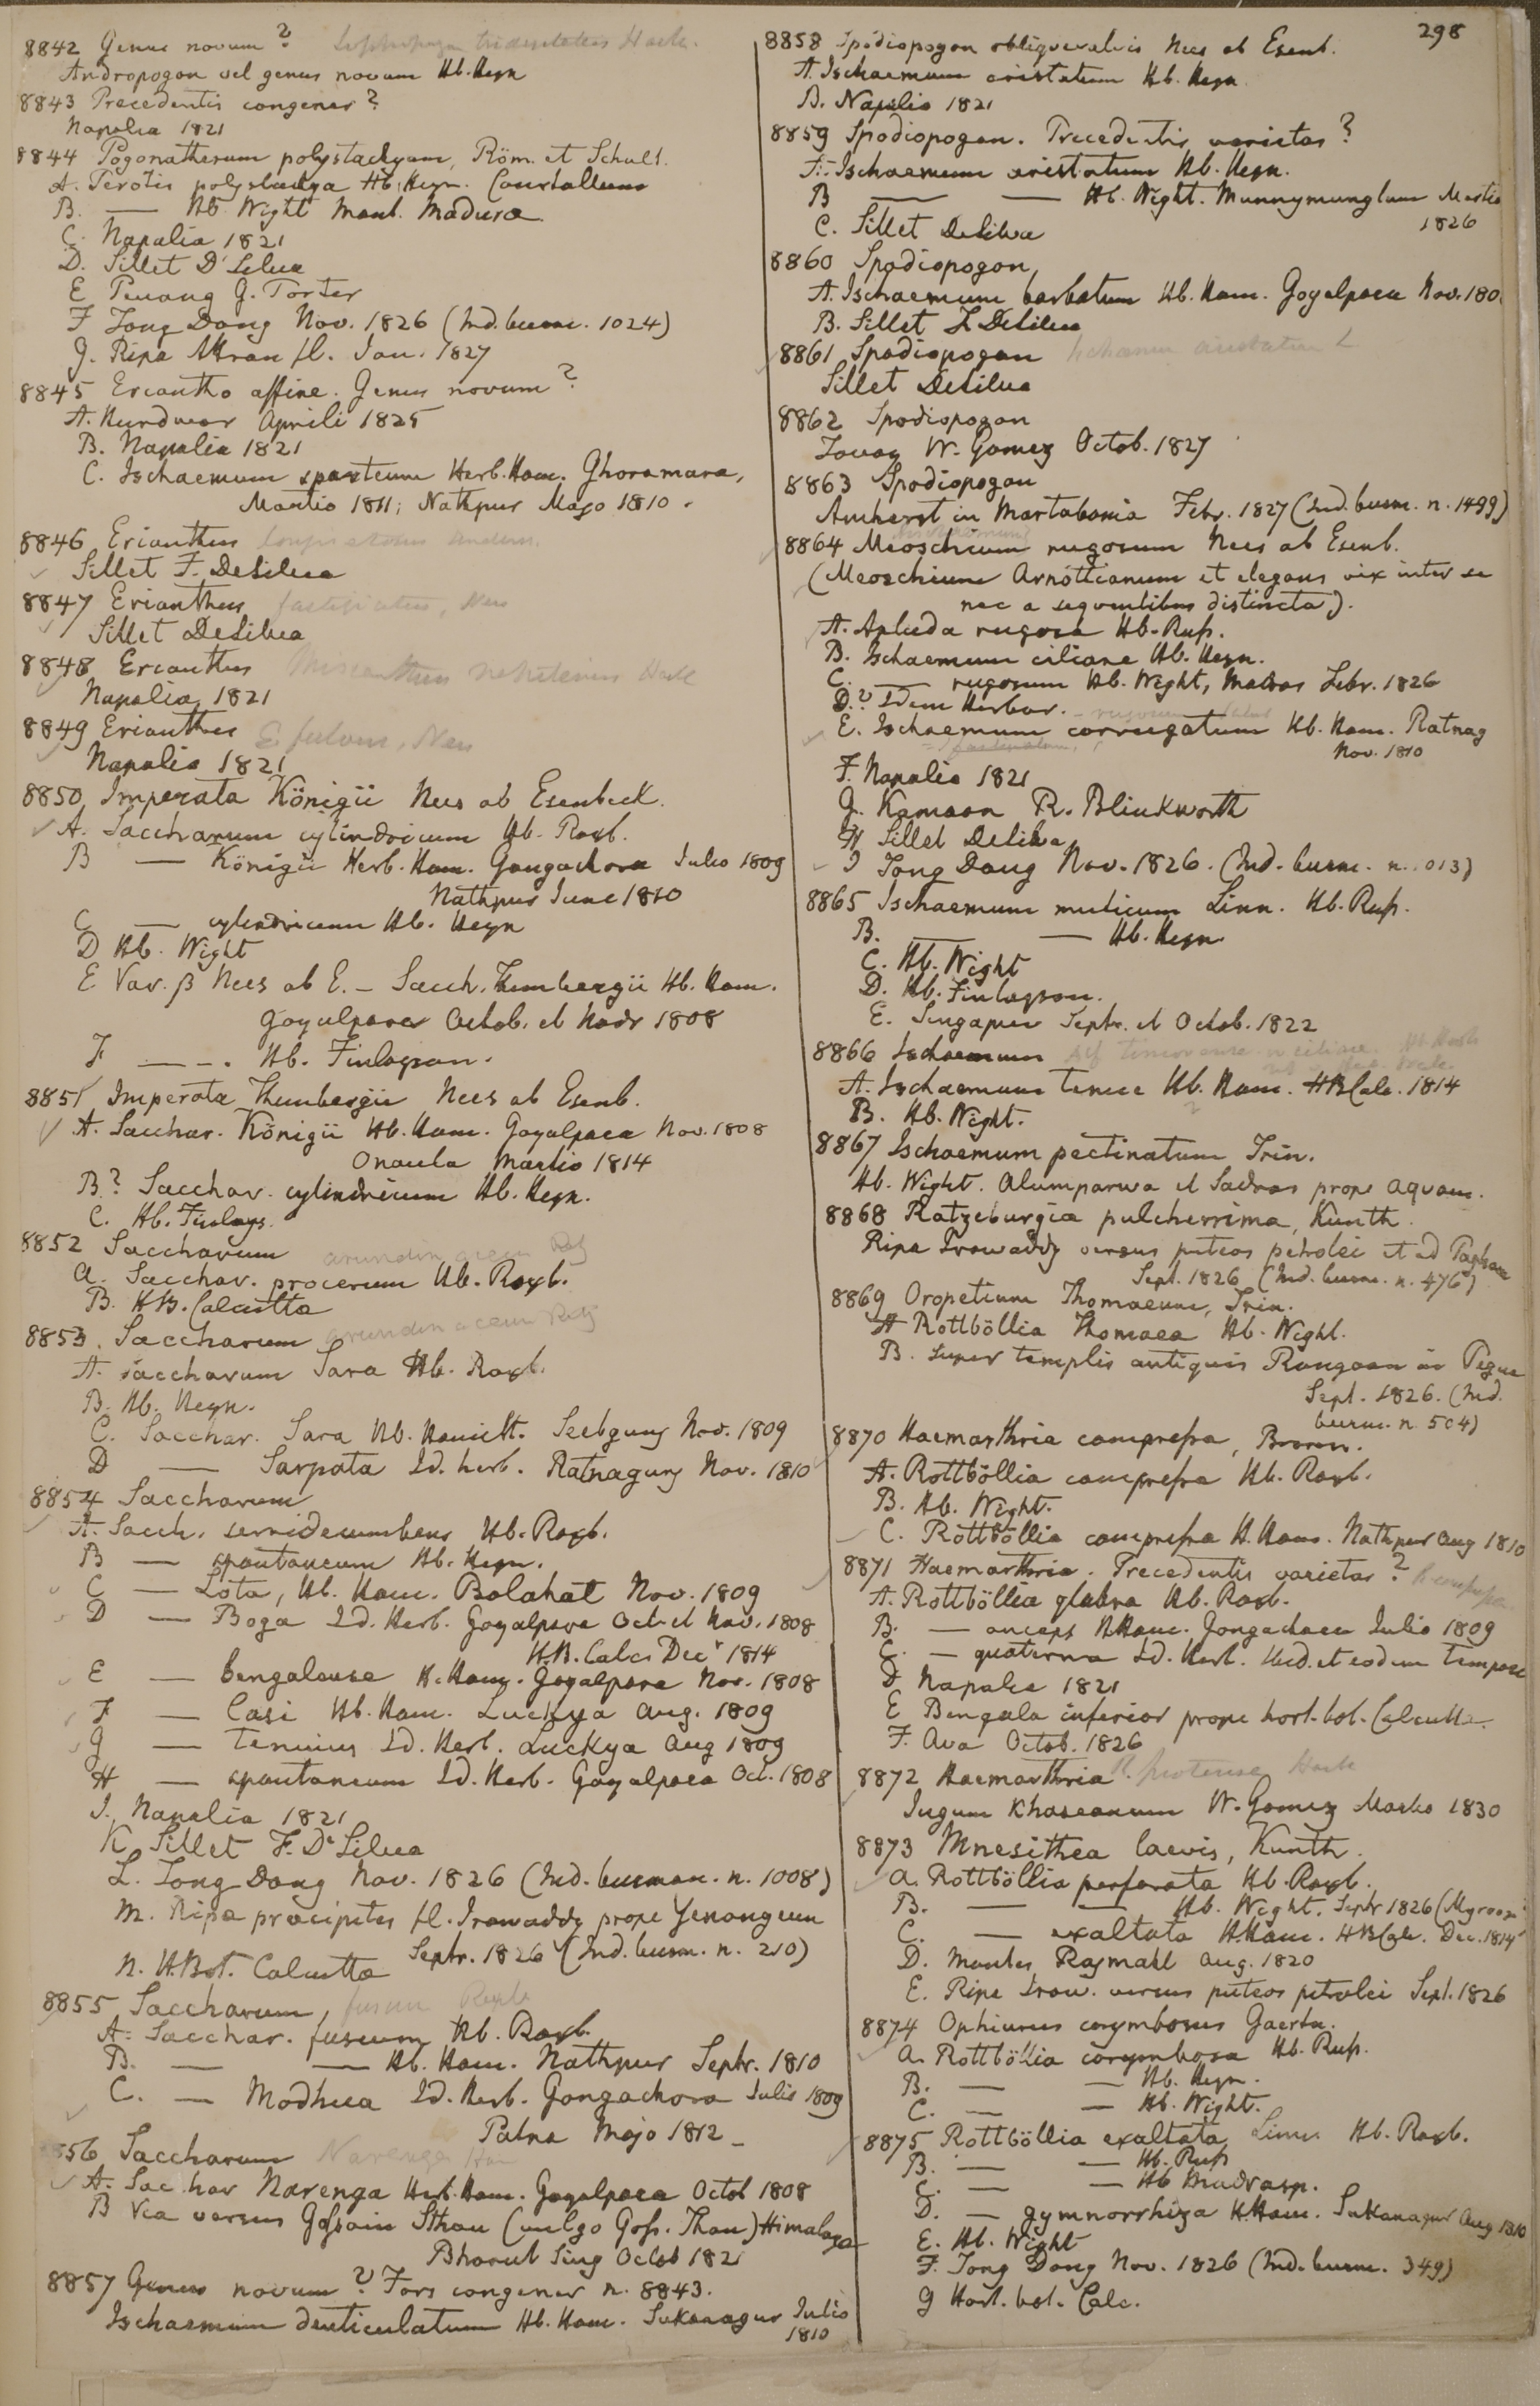 298
8842 Genus novum? Lophopogon tridentatus Hack.
Andropogon vel genus novum Hb. Heyn
8843 Precedentis congener?
Napalia 1821
8844 Pogonatherum polystachyum, Röm. et Schult.
A. Perotis polystachya Hb. Heyn. Courtallum
B. — Hb. Wight Mont. Madura
C. Napalia 1821
D. Sillet D'Silua
E Penang G. Porter
F Tong Dong Nov. 1826 (Ind. burm. 1024)
G. Ripa Attran fl. Jan. 1827
8845 Eriantho affine. Genus novum?
A. Hurdwar Aprili 1825
B. Napalia 1821
C. Ischaemum sparteum Herb. Ham. Ghoramara,
Martio 1811; Nathpur Majo 1810.
8846 Erianthus
Sillet F. DeSilua
8847 Erianthus fastigiatus, Nees
Sillet DeSilua
8848 Erianthus Miscanthus nepalensis Hack
Napalia 1821
8849 Erianthus E. fulvus, Nees
Napalia 1821
8850 Imperata Königii Nees ab Esenbeck.
A. Saccharum cylindricum Hb. Roxb.
B — Königii Herb. Ham. Gongachora Julio 1809
Nathpur June 1810
C — cylindricum Hb. Heyn
D Hb. Wight
E Var. β Nees ab E. – Sacch. Thunbergii Hb. Ham.
Goyalpara Octob. et Novr 1808
F — – . Hb. Finlayson.
8851 Imperata Thunbergii Nees ab Esenb.
A. Sacchar. Königii Hb. Ham. Goyalpara Nov. 1808
Onaula Martio 1814
B? Sacchar. cylindricum Hb. Heyn.
C. Hb. Finlays.
8852 Saccharum arundinaceum Retz
a. Sacchar. procerum Hb. Roxb.
B. H.B. Calcutta
8853. Saccharum arundinaceum Retz
A. saccharum Sara Hb. Roxb.
B. Hb. Heyn.
C. Sacchar. Sara Hb. Hamilt. Seebgunj Nov. 1809
D — Sarpata Id. herb. Ratnagunj Nov. 1810
8854 Saccharum
A. Sacch. semidecumbens Hb. Roxb.
B — spontaneum Hb. Heyn.
C — Lota, Hb. Ham. Bolahat Nov. 1809
D — Boga Id. Herb. Goyalpara Oct. et Nov. 1808
H.B. Calc. Decr 1814
E — bengalense H. Ham. Goyalpara Nov. 1808
F — Casi Hb. Ham. Luckya Aug. 1809
G — tenuius Id. Herb. Luckya Aug 1809
H — spontaneum Id. Herb. Goyalpara Oct. 1808
I. Napalia 1821
K Sillet F. De Silua
L. Tong Dong Nov. 1826 (Ind. burman. n. 1008)
M. Ripa precipites fl. Irawaddy prope Yenongeun
Septr. 1826 (Ind. burm. n. 210)
N. H. Bot. Calcutta
8855 Saccharum, fuscum Roxb
A. Sacchar. fuscum Hb. Roxb.
B. — — Hb. Ham. Nathpur Septr. 1810
C. — Modhua Id. Herb. Gongachora Julio 1809
Patna Majo 1812
56 Saccharum Narenga Ham
A. Sacchar Narenga Herb. Ham. Goyalpara Octob 1808
B Via versus Gossain Sthan (vulgo Goss. Than) Himalaya
Bharut Sing Octob 1821
8857 Genus novum? Fors congener n. 8843.
Ischaemum denticulatum Hb. Ham. Sukanagur Julio
1810
8858 Spodiopogon obliquivalvis Nees ab Esenb.
A. Ischaemum aristatum Hb. Heyn.
B. Napalia 1821
8859 Spodiopogon. Precedentis varietas?
A. Ischaemum aristatum Hb. Heyn.
B — — Hb. Wight. Munnymunglum Martio
1826
C. Sillet DeSilua
8860 Spodiopogon
A. Ischaemum barbatum Hb. Ham. Goyalpara Nov. 180
B. Sillet F. DeSilua
8861 Spodiopogon Ischaemum aristatum L
Sillet DeSilua
8862 Spodiopogon
Tavoy W. Gomez Octob. 1827
8863 Spodiopogon
Amherst in Martabania Febr. 1827 (Ind. burm. n. 1499)
8864 Meoschium rugosum Nees ab Esenb.
(Meoschium Arnottianum et elegans vix inter se
nec a sequentibus distincta).
A. Apluda rugosa Hb. Rups.
B. Ischaemum ciliare Hb. Heyn.
C. — rugosum Hb. Wight, Madras Febr. 1826
D.? Idem Herbar. rugosum
E. Ischaemum corrugatum Hb. Ham. Ratnag
Nov. 1810
F. Napalia 1821
G. Kamaon R. Blinkworth
H Sillet DeSilva
I Tong Dong Nov. 1826. (Ind. burm. n. 1013)
8865 Ischaemum muticum Linn. Hb. Rups.
B. — — Hb. Heyn
C. Hb. Wight
D. Hb. Finlayson.
E. Singapur Septr. et Octob. 1822
8866 Ischaemum
A. Ischaemum tenue Hb. Ham. HBCalc. 1814
B. Hb. Wight.
8867 Ischaemum pectinatum Trin.
Hb. Wight. Alumparwa et Sadras prope aquam.
8868 Ratzeburgia pulcherrima, Kunth.
Ripa Irawaddy versus puteos petrolei et ad
Sept. 1826 (Ind. burm. n. 476)
8869 Oropetium Thomaeum, Trin.
A Rottböllia Thomaea Hb. Wight.
B. Super templis antiquis Rangoon in Pegu
Sept. 1826. (Ind.
burm. n. 504)
8870 Haemarthria compressa, Brown.
A. Rottböllia compressa Hb. Roxb.
B. Hb. Wight.
C. Rottböllia compressa H. Ham. Nathpur Aug 1810
8871 Haemarthria. Precedentis varietas? H compressa
A. Rottböllia glabra Hb. Roxb.
B. — anceps H.Ham. Gongachora Julio 1809
C. — quaterna Id. Herb. ibid. et eodem tempore
D Napalia 1821
E Bengala inferior prope hort. bot. Calcutta.
F. Ava Octob. 1826
8872 Haemarthria R. protensa Hack
Jugum Khaseanum W. Gomez Martio 1830
8873 Mnesithea laevis, Kunth.
a. Rottböllia perforata Hb. Roxb.
B. — — Hb. Wight. Septr 1826 (Mysoor
C. — exaltata H.Ham. HBCalc. Dec. 1814
D. Montes Rajmahl Aug. 1820
E. Ripa Iraw. versus puteos petrolei Sept. 1826
8874 Ophiurus corymbosus Gaertn.
a. Rottböllia corymbosa Hb. Rups.
B. — — Hb. Heyn.
C. — — Hb. Wight.
8875 Rottböllia exaltata Linn Hb. Roxb.
B. — — Hb. Rups
C. — — Hb Madrasp.
D. — gymnorrhiza H.Ham. Sukanagur Aug 1810
E. Hb. Wight
F. Tong Dong Nov. 1826 (Ind. burm. 349)
G Hort. bot. Calc.